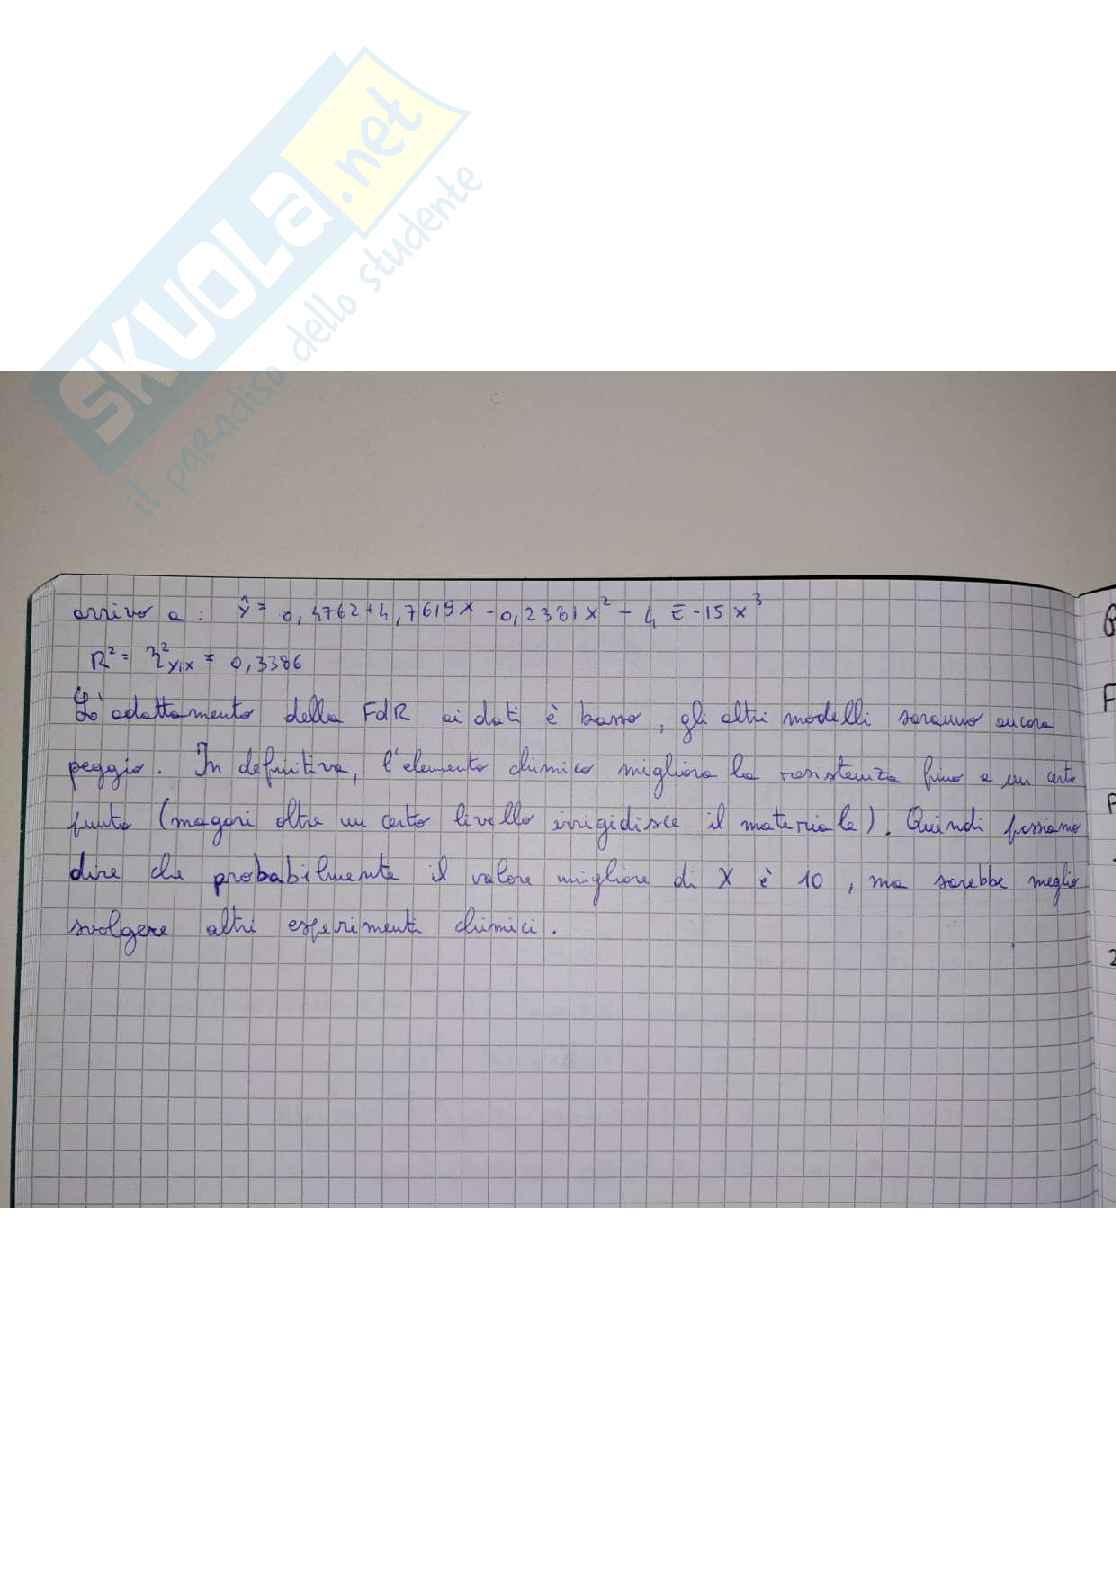 SKUOLA.net
il paradiso dello studente
arrivo a: ŷ = 0,4762 + 4,7619x - 0,2381x² - 4E-15x³
R² = η²y|x = 0,3386
L'adattamento della FdR ai dati è basso, gli altri modelli saranno ancora
peggio. In definitiva, l'elemento chimico migliora la resistenza fino a un certo
punto (magari oltre un certo livello irrigidisce il materiale). Quindi possiamo
dire che probabilmente il valore migliore di X è 10, ma sarebbe meglio
svolgere altri esperimenti chimici.